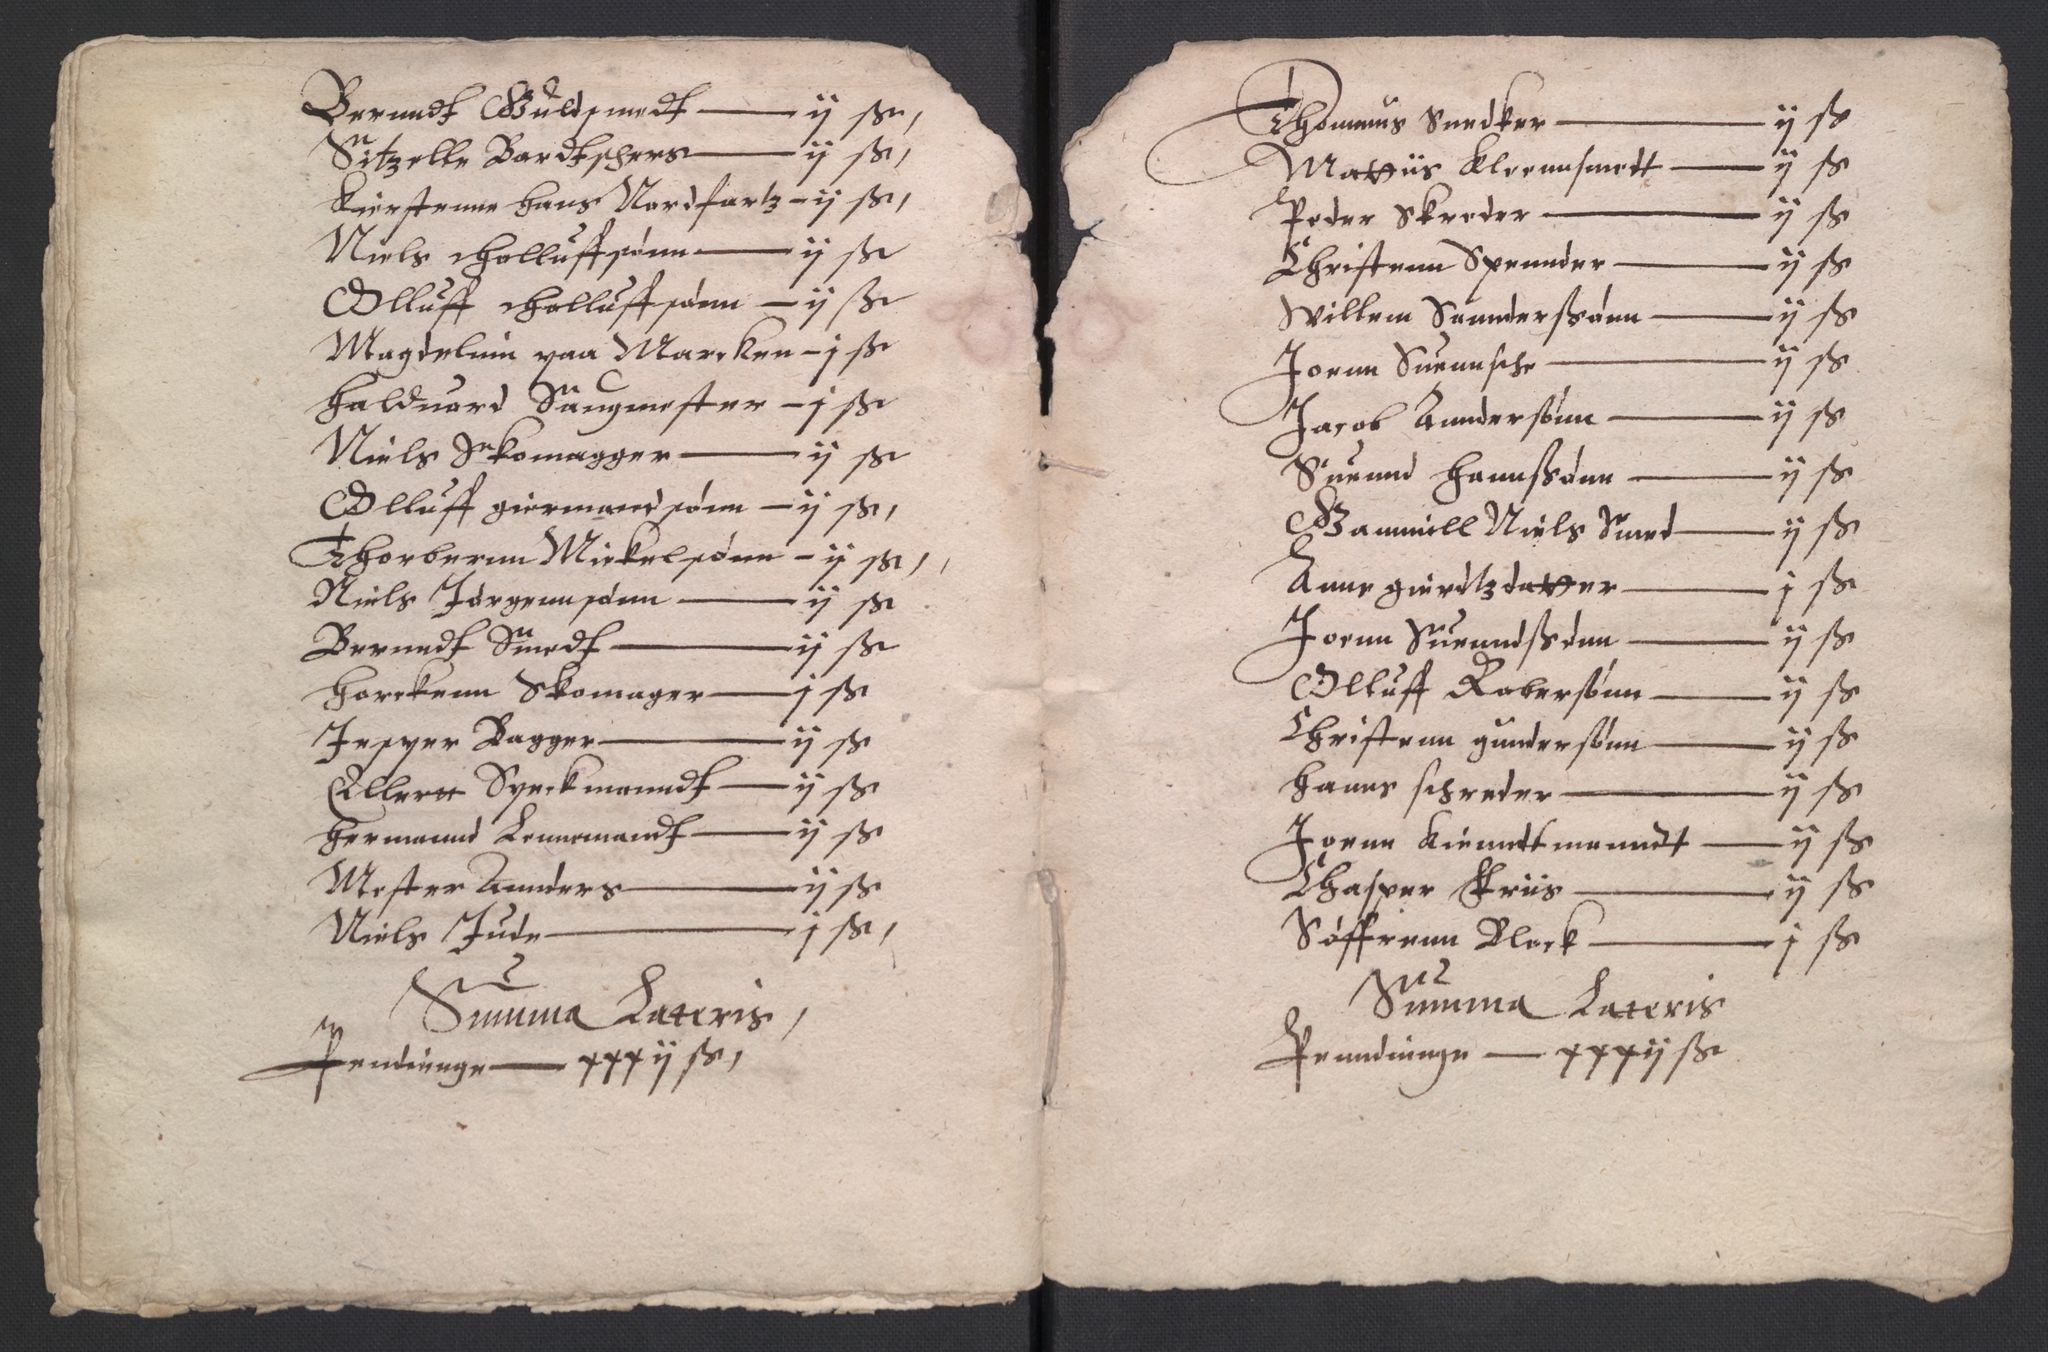 Berendt Guldsmedt — ij ß,
Sitzelle Bardtschers — ij ß,
Kierstenne Hans Nordfartz — ij ß,
Niels Holluffsønn — ij ß
Olluff Holluffsønn — ij ß
Magdelnin paa Marcken — j ß
Halduord Sangmester — j ß
Niels Skomagger — ij ß
Olluff giermandsønn — ij ß,
Thorbernn Mickelsønn — ij ß,
Niels Jørgennsønn — ij ß
Berendt Smedt — ij ß
Horckenn Skomager — j ß
Jesper Bagger — ij ß
Allertt Speckmanndt — ij ß
Hermannd Lennemandt — ij ß
Mester Annders — ij ß
Niels Jude — j ß,
Summa Lateris,
Pendinnge — xxxij ß,
Thommes Snedker — ij ß
Mattiis Kleennsmett — ij ß
Peder Skreder — ij ß
Christenn Spennder — ij ß
Willem Sannderßsønn — ij ß
Joenn Suennsche — ij ß
Jacob Anndersønn — ij ß
Suennd Hannßsønn — ij ß
Gammill Niels Smed — ij ß
Anne gierdtzdatter — j ß
Joenn Suenndßsønn — ij ß
Olluff Robersønn — ij ß
Christenn gundersønn — ij ß
Hanns schreder — ij ß
Joenn Kienndtmanndt — ij ß
Chasper Friis — ij ß
Søffrenn Block — j ß
Summa Lateris
Penndinnge — xxxij ß